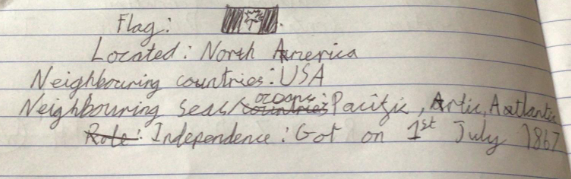 Flag:
Located: North America
Neighbouring countries: USA
Neighbouring seas/oceans: Pacific, Artic, Aatlantic
Independence: Got on 1st July 1867